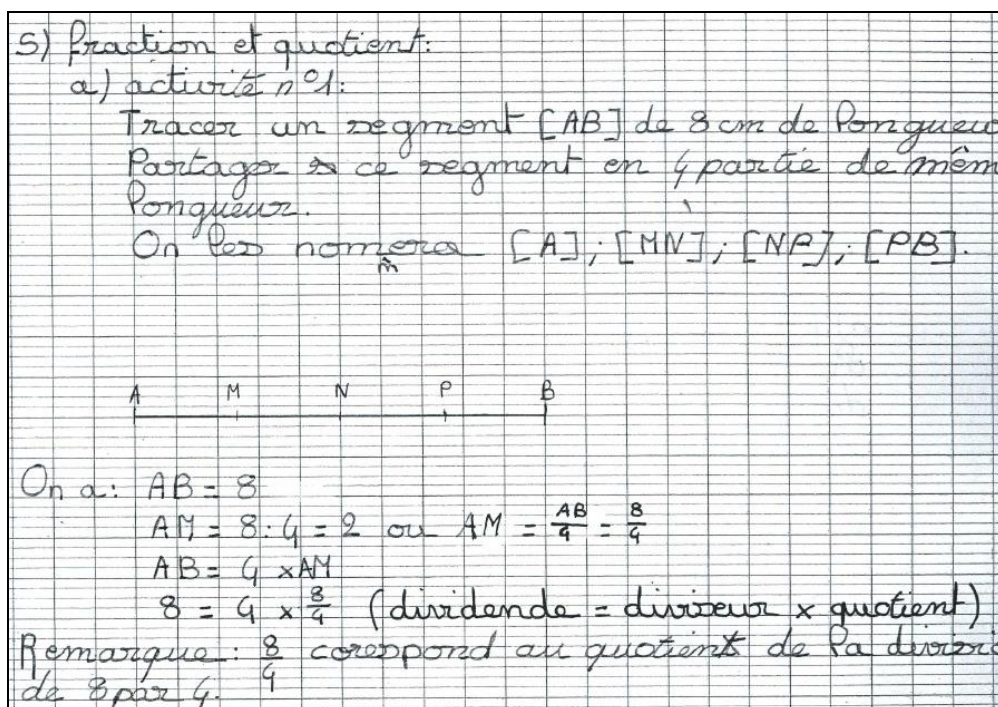 5) fraction et quotient:
a) activité n°1:
Tracer un segment [AB] de 8 cm de longueu
Partager ce segment en 4 partie de mêm
longueur.
On les nomera [A]; [MN]; [NP]; [PB].
m
A M N P B
On a: AB = 8
AM = 8:4 = 2 ou AM = AB/4 = 8/4
AB = 4 × AM
8 = 4 × 8/4 (dividende = diviseur × quotient)
Remarque: 8/4 correspond au quotient de la divisi
de 8 par 4.